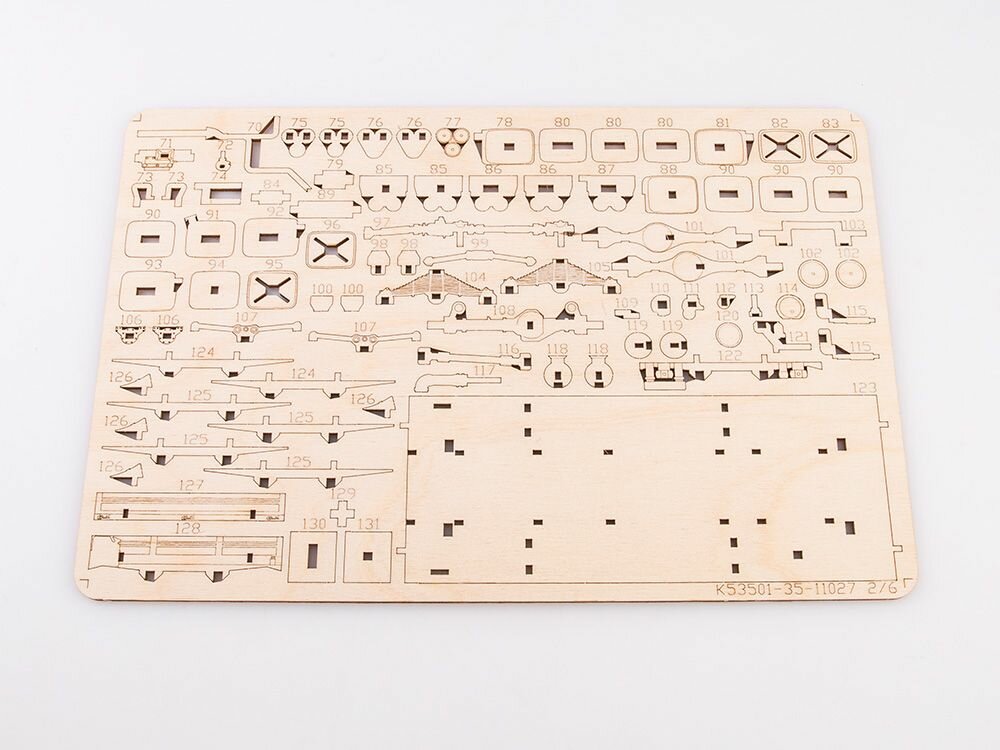 70 75 75 76 76 77 78 80 80 80 81 82 83
71 72 79
73 73 74 84 85 85 86 86 87 88 90 90 90
89
90 91 92 96 97 101 103
98 98 99 101 102 102
93 94 95 100 100 104 105 110 111 112 113 114
106 106 107 107 108 109 120 115
119 119 121 115
124 116 118 118 122
126 124 117 123
125 126
126 125
125
126 125
127 129
128 130 131
K53501-35-11027 2/6